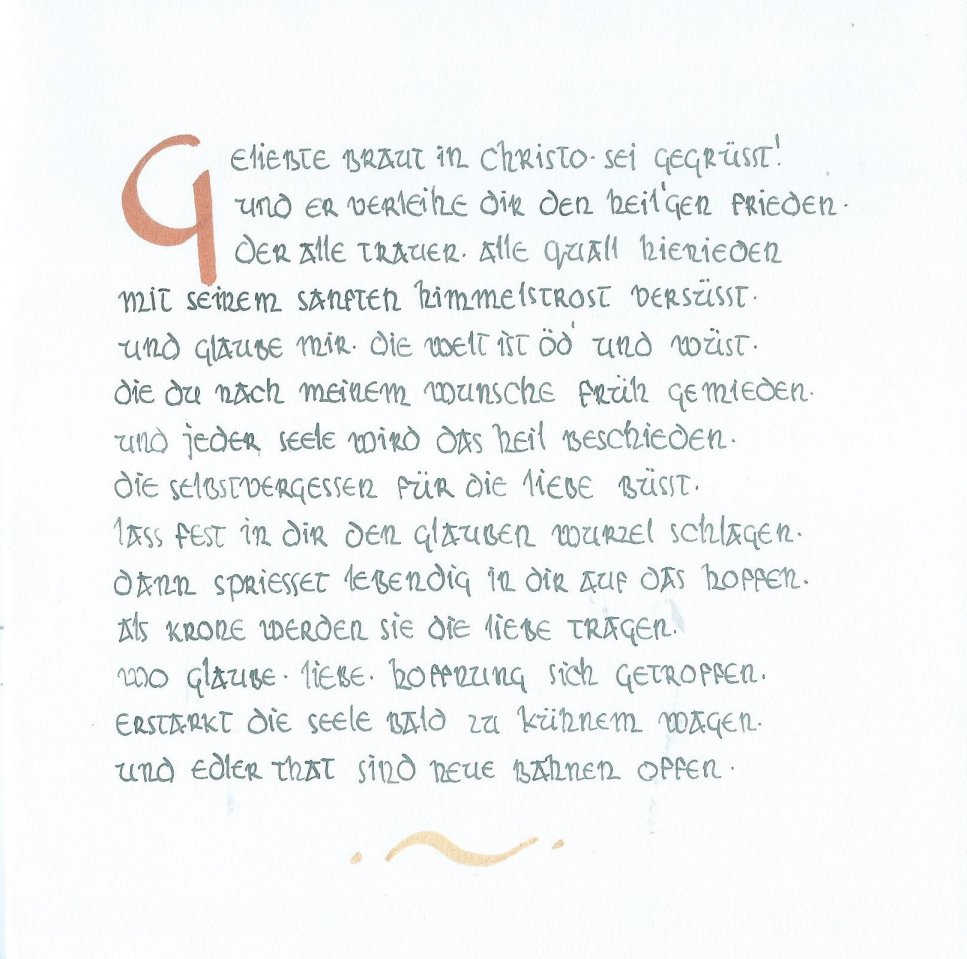 Geliebte Braut in Christo· sei gegrüsst!
und er verleihe dir den heil'gen Frieden·
der alle Trauer· alle Quall hienieden
mit seinem sanften Himmelstrost versüsst·
und glaube mir· die Welt ist öd' und wüst·
die du nach meinem Wunsche früh gemieden·
und jeder Seele wird das Heil beschieden·
die selbstvergessen für die Liebe büsst·
lass fest in dir den Glauben Wurzel schlagen·
dann spriesset lebendig in dir auf das Hoffen·
als Krone werden sie die Liebe tragen·
wo Glaube· Liebe· Hoffnung sich getroffen·
erstarkt die Seele bald zu kühnem Wagen·
und edler That sind neue Bahnen offen·